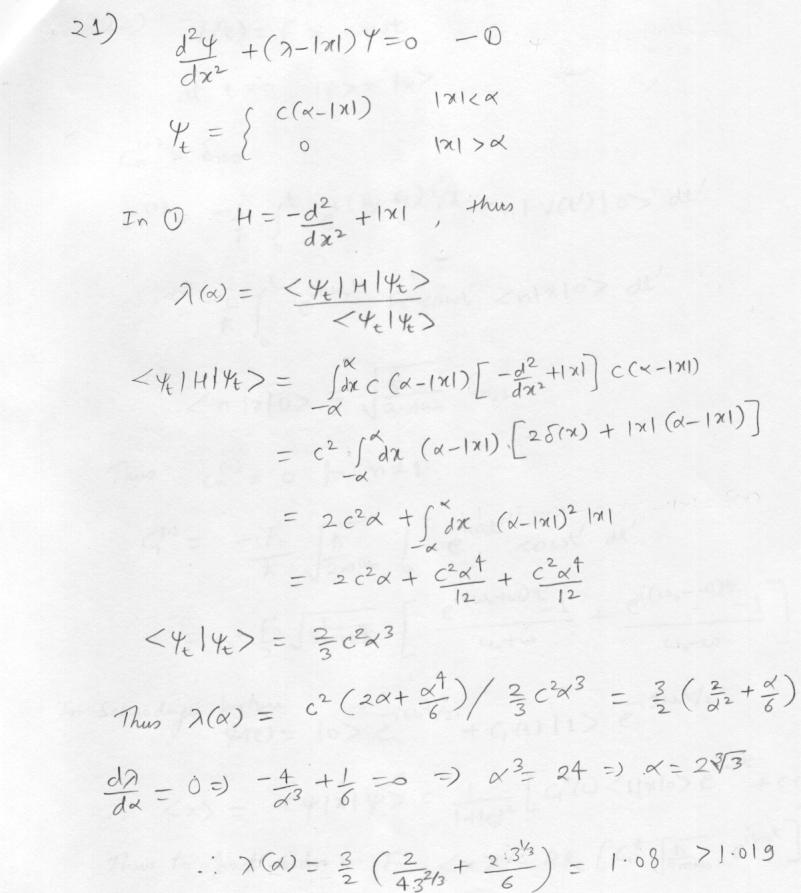 21)
d²ψ/dx² + (λ-|x|)ψ=0 — ①
ψ_t = { c(α-|x|) |x|<α
0 |x|>α
In ① H = -d²/dx² + |x| , thus
λ(α) = <ψ_t|H|ψ_t> / <ψ_t|ψ_t>
<ψ_t|H|ψ_t> = ∫_{-α}^{α} dx c (α-|x|) [-d²/dx² + |x|] c(α-|x|)
= c² ∫_{-α}^{α} dx (α-|x|) [2δ(x) + |x|(α-|x|)]
= 2c²α + ∫_{-α}^{α} dx (α-|x|)² |x|
= 2c²α + c²α⁴/12 + c²α⁴/12
<ψ_t|ψ_t> = 2/3 c²α³
Thus λ(α) = c² (2α + α⁴/6) / 2/3 c²α³ = 3/2 (2/α² + α/6)
dλ/dα = 0 ⇒ -4/α³ + 1/6 = 0 ⇒ α³ = 24 ⇒ α = 2∛3
∴ λ(α) = 3/2 (2/4 3^{2/3} + 2·3^{1/3}/6) = 1.08 > 1.019